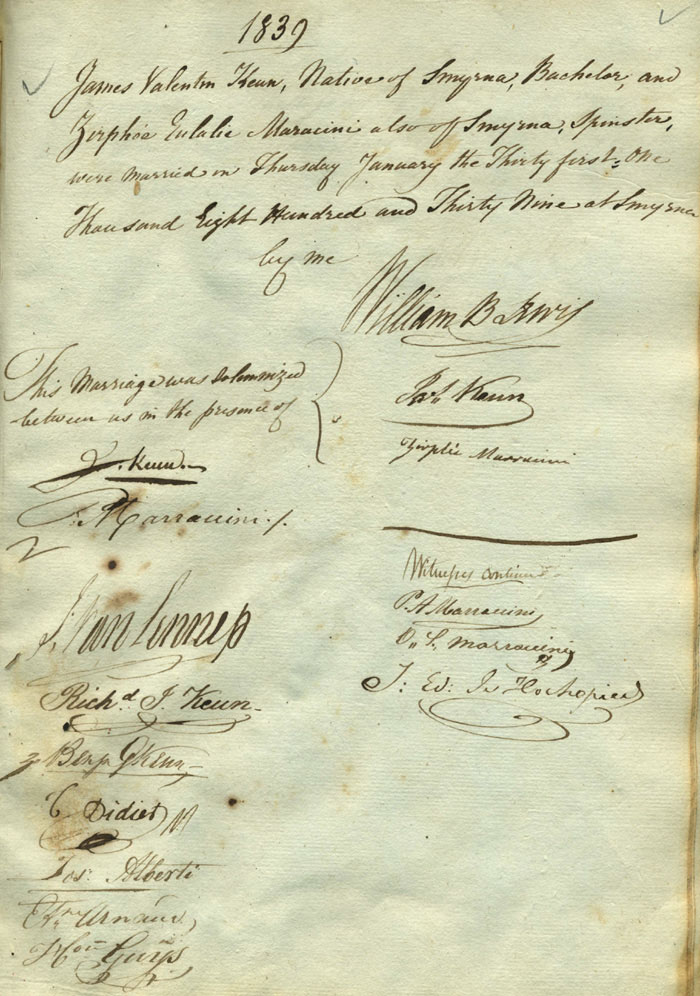 1839
James Valentin Keun, Native of Smyrna, Bachelor, and
Zirphéa Eulalie Maracini also of Smyrna, Spinster,
were married on Thursday January the Thirty first = One
Thousand Eight Hundred and Thirty Nine at Smyrna
by me
William B Lewis
This Marriage was Solemnized
between us in the presence of
Jas. Keun
Zirphée Marracini
Keun
Marraccini
J. Van Lennep
Richd. J. Keun
Benja G Keun
C Didier
Jos. Alberti
Guys
Witnesses continued
P. A Marraccini
D. L. marraccini
J: Ed: De Hochepied